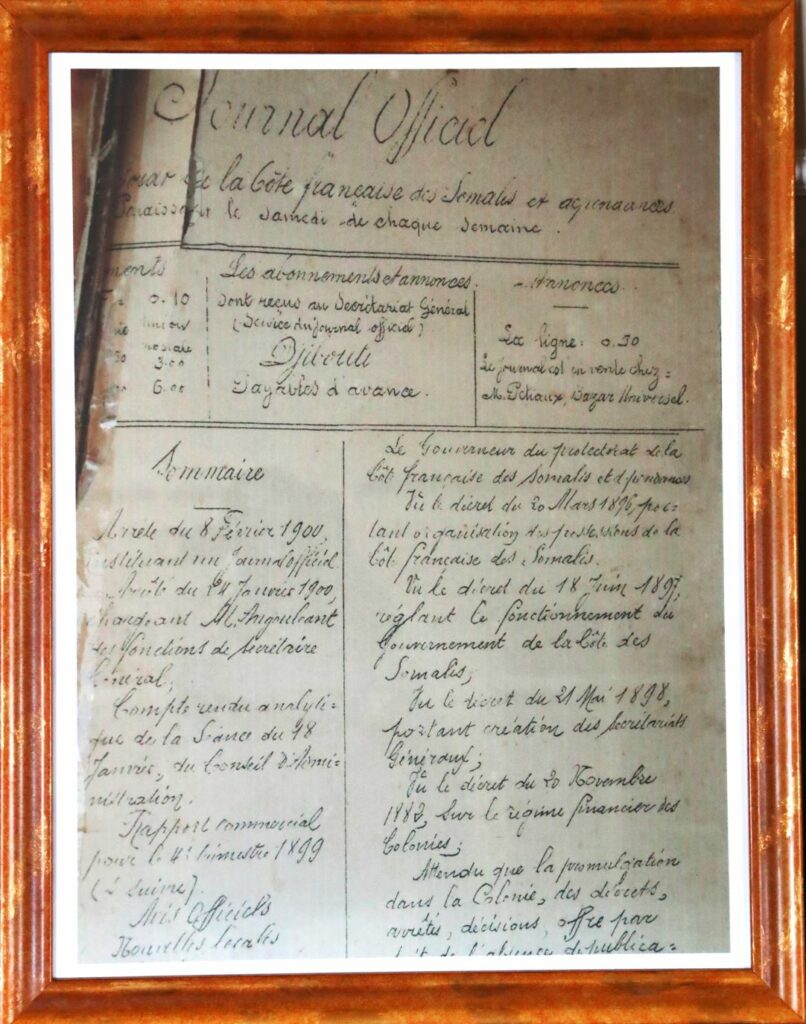 Journal Officiel
de la Côte française des Somalis et
Paraissant le samedi de chaque semaine.
ments
0.10
3.00
6.00
Les abonnements et annonces.
sont reçus au Secrétariat Général
(Service du journal officiel)
Djibouti
Payables d'avance.
Annonces.
La ligne: 0.50
Le journal est en vente chez:
M. Bazar Universel.
Sommaire
Arrêté du 8 Février 1900,
instituant un Journal officiel
Arrêté du 24 Janvier 1900,
chargeant M. Angoulvant
des fonctions de Secrétaire
Général,
Compte rendu analyti-
que de la Séance du 18
Janvier, du Conseil d'Admi-
nistration.
Rapport commercial
pour le 4e trimestre 1899
(à suivre).
Avis Officiels
Nouvelles locales
Le Gouverneur du protectorat de la
Côte française des Somalis et dépendances
Vu le décret du 20 Mars 1896, por-
tant organisation des possessions de la
Côte française des Somalis.
Vu le décret du 18 Juin 1897,
réglant le fonctionnement du
Gouvernement de la Côte des
Somalis;
Vu le décret du 21 Mai 1898,
portant création des Secrétariats
Généraux;
Vu le décret du 20 Novembre
1882, sur le régime financier des
Colonies;
Attendu que la promulgation
dans la Colonie, des décrets,
arrêtés, décisions, offre par
suit de l'absence de publica=